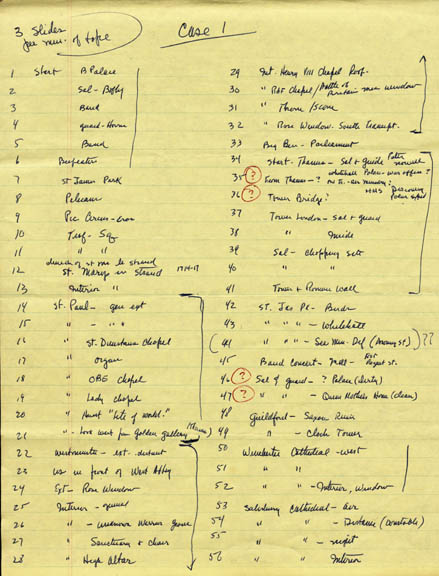 3 Slides
per min. of tape
Case 1
1 Start B Palace
2 Sal - Bobby
3 Band
4 Guard - Horse
5 Band
6 Beefeater
7 St James Park
8 Pelican
9 Pic Circus - Eros
10 Traf - Sq
11 " "
Church of St Mary le Strand
12 St. Marys in Strand 1714-17
13 Interior "
14 St. Paul - gen ext
15 " - " "
16 " St. Dunstans Chapel
17 " Organ
18 " OBE chapel
19 " Lady chapel
20 " Hunt "Lite of World."
21 " - Love west from Golden gallery
22 Westminster - ext. distant
23 us in front of West Abby
24 Ext - Rose Window
25 Interior - general
26 " - Unknown Warrior Grave
27 " Sanctuary & Choir
28 " High Altar
29 Int. Henry VIII Chapel Roof.
30 " RAF Chapel / Battle of Britain mem window
31 " Throne / Scone
32 " Rose Window. South Transept.
33 Big Ben - Parliament
34 Start - Thames - Sal & guide Peter
35 ? From Thames - ?
36 ? Tower Bridge? HMS Discovery
37 Tower London - Sal & guard
38 " Inside
39 Sal - chopping block
40 " "
41 Tower & Roman Wall
42 St. Jas Pk - Birds
43 " " " - Whitehall
(44 " " " - See Min. Def ) ??
45 Band Concert - Mall -
46 ? Sal & guard - ? Palace (dirty)
47 ? " " - Queen Mothers Home (clean)
48 Guildford - Saxon Ruin
49 " - Clock Tower
50 Winchester Cathedral - west
51 " "
52 " " - Interior, window
53 Salisbury Cathedral - air
54 " " - Distance (Constable)
55 " " - night
56 " " Interior